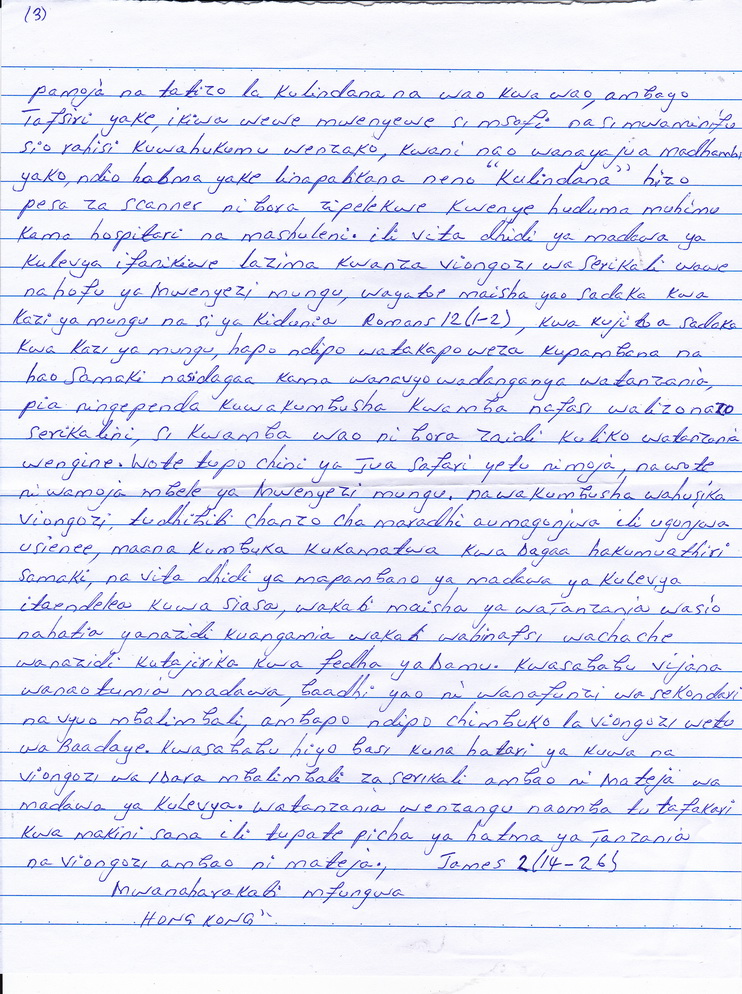 (3)
pamoja na tatizo la kulindana na wao kwa wao, ambayo
Tafsiri yake, ikiwa wewe mwenyewe si msafi na si mwaminifu
sio rahisi kuwahukumu wenzako, kwani nao wanayajua madhambi
yako, ndio hatma yake linapatikana neno "kulindana" hizo
pesa za scanner ni bora zipelekwe kwenye huduma muhimu
kama hospitari na mashuleni. ili vita dhidi ya madawa ya
kulevya ifanikiwe lazima kwanza viongozi wa serikali wawe
na hofu ya Mwenyezi mungu, wayatoe maisha yao sadaka kwa
kazi ya mungu na si ya kidunia Romans 12(1-2), kwa kujitoa sadaka
kwa kazi ya mungu, hapo ndipo watakapoweza kupambana na
hao samaki nasidagaa kama wanavyowadanganya watanzania,
pia ningependa kuwakumbusha kwamba nafasi walizonazo
serikalini, si kwamba wao ni bora zaidi kuliko watanzania
wengine. Wote tupo chini ya Jua safari yetu nimoja, nawote
ni wamoja mbele ya Mwenyezi mungu. nawakumbusha wahusika
viongozi, tudhibiti chanzo cha maradhi aumagonjwa ili ugonjwa
usienee, maana kumbuka kukamatwa kwa Dagaa hakumuathiri
samaki, na vita dhidi ya mapambano ya madawa ya kulevya
itaendelea kuwa siasa, wakati maisha ya waTanzania wasio
nahatia yanazidi kuangamia wakati wabinafsi wachache
wanazidi kutajirika kwa fedha ya Damu. Kwasababu vijana
wanaotumia madawa, baadhi yao ni wanafunzi wa sekondari
na vyuo mbalimbali, ambapo ndipo chimbuko la viongozi wetu
wa Baadaye. Kwasababu hiyo basi kuna hatari ya kuwa na
viongozi wa Idara mbalimbali za serikali ambao ni Mateja wa
madawa ya kulevya. watanzania wenzangu naomba tutafakari
kwa makini sana ili tupate picha ya hatma ya Tanzania
na viongozi ambao ni mateja., James 2(14-26)
Mwanaharakati mfungwa
HONG KONG"